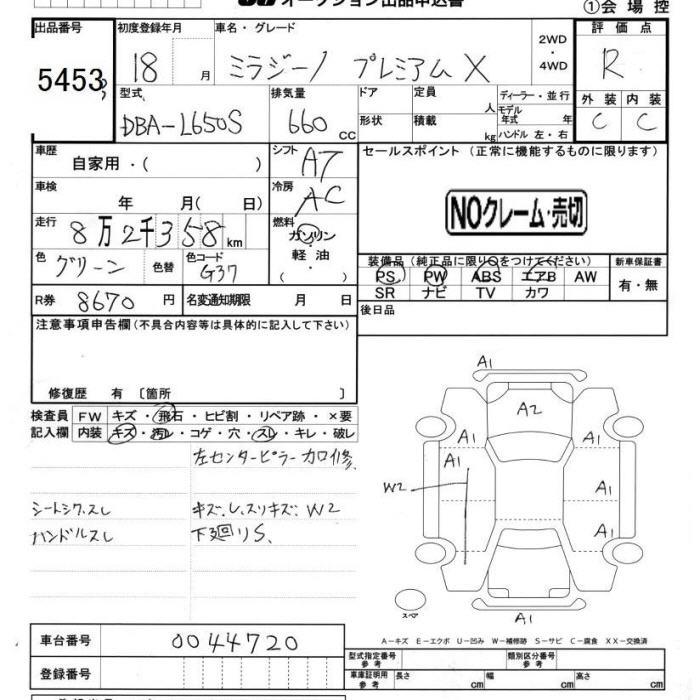 オークション出品申込書
①会場控
出品番号 初度登録年月 車名・グレード 2WD・4WD 評価点
5453 18 月 ミラジーノ プレミアムX R
型式 排気量 ドア 定員 人 ディーラー・並行 外装 内装
DBA-L650S 660 cc 形状 積載 kg モデル年式 年 ハンドル 左・右 C C
車歴 シフト セールスポイント (正常に機能するものに限ります)
自家用・( ) AT
車検 冷房
年 月( 日) AC
NOクレーム・売切
走行 燃料
8万2千358km ガソリン・軽油・( )
色 色替 色コード 装備品(純正品に限り○をつけてください) 新車保証書
グリーン G37 PS PW ABS エアB AW 有・無
SR ナビ TV カワ
R券 8670円 名変通知期限 月 日 後日品
注意事項申告欄(不具合内容等は具体的に記入して下さい)
修復歴 有 〔箇所 〕
検査員 FW キズ・飛石・ヒビ割・リペア跡・×要
記入欄 内装 キズ・汚レ・コゲ・穴・スレ・キレ・破レ
左センターピラー カロ修
シートシワ.スレ キズ.U.スリキズ.W2
ハンドルスレ 下廻りS.
A1
A2
A1 A1
A1
W2 A1
A1
スペア
A1
A-キズ E-エクボ U-凹み W-補修跡 S-サビ C-腐食 XX-交換済
車台番号 0044720
型式指定番号 参考 類別区分番号 参考
登録番号 車庫証明用 参考 長さ cm 幅 cm 高さ cm